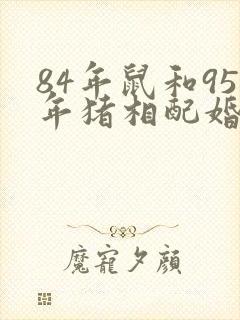 84年鼠和95
年猪相配婚
魔寵夕顔